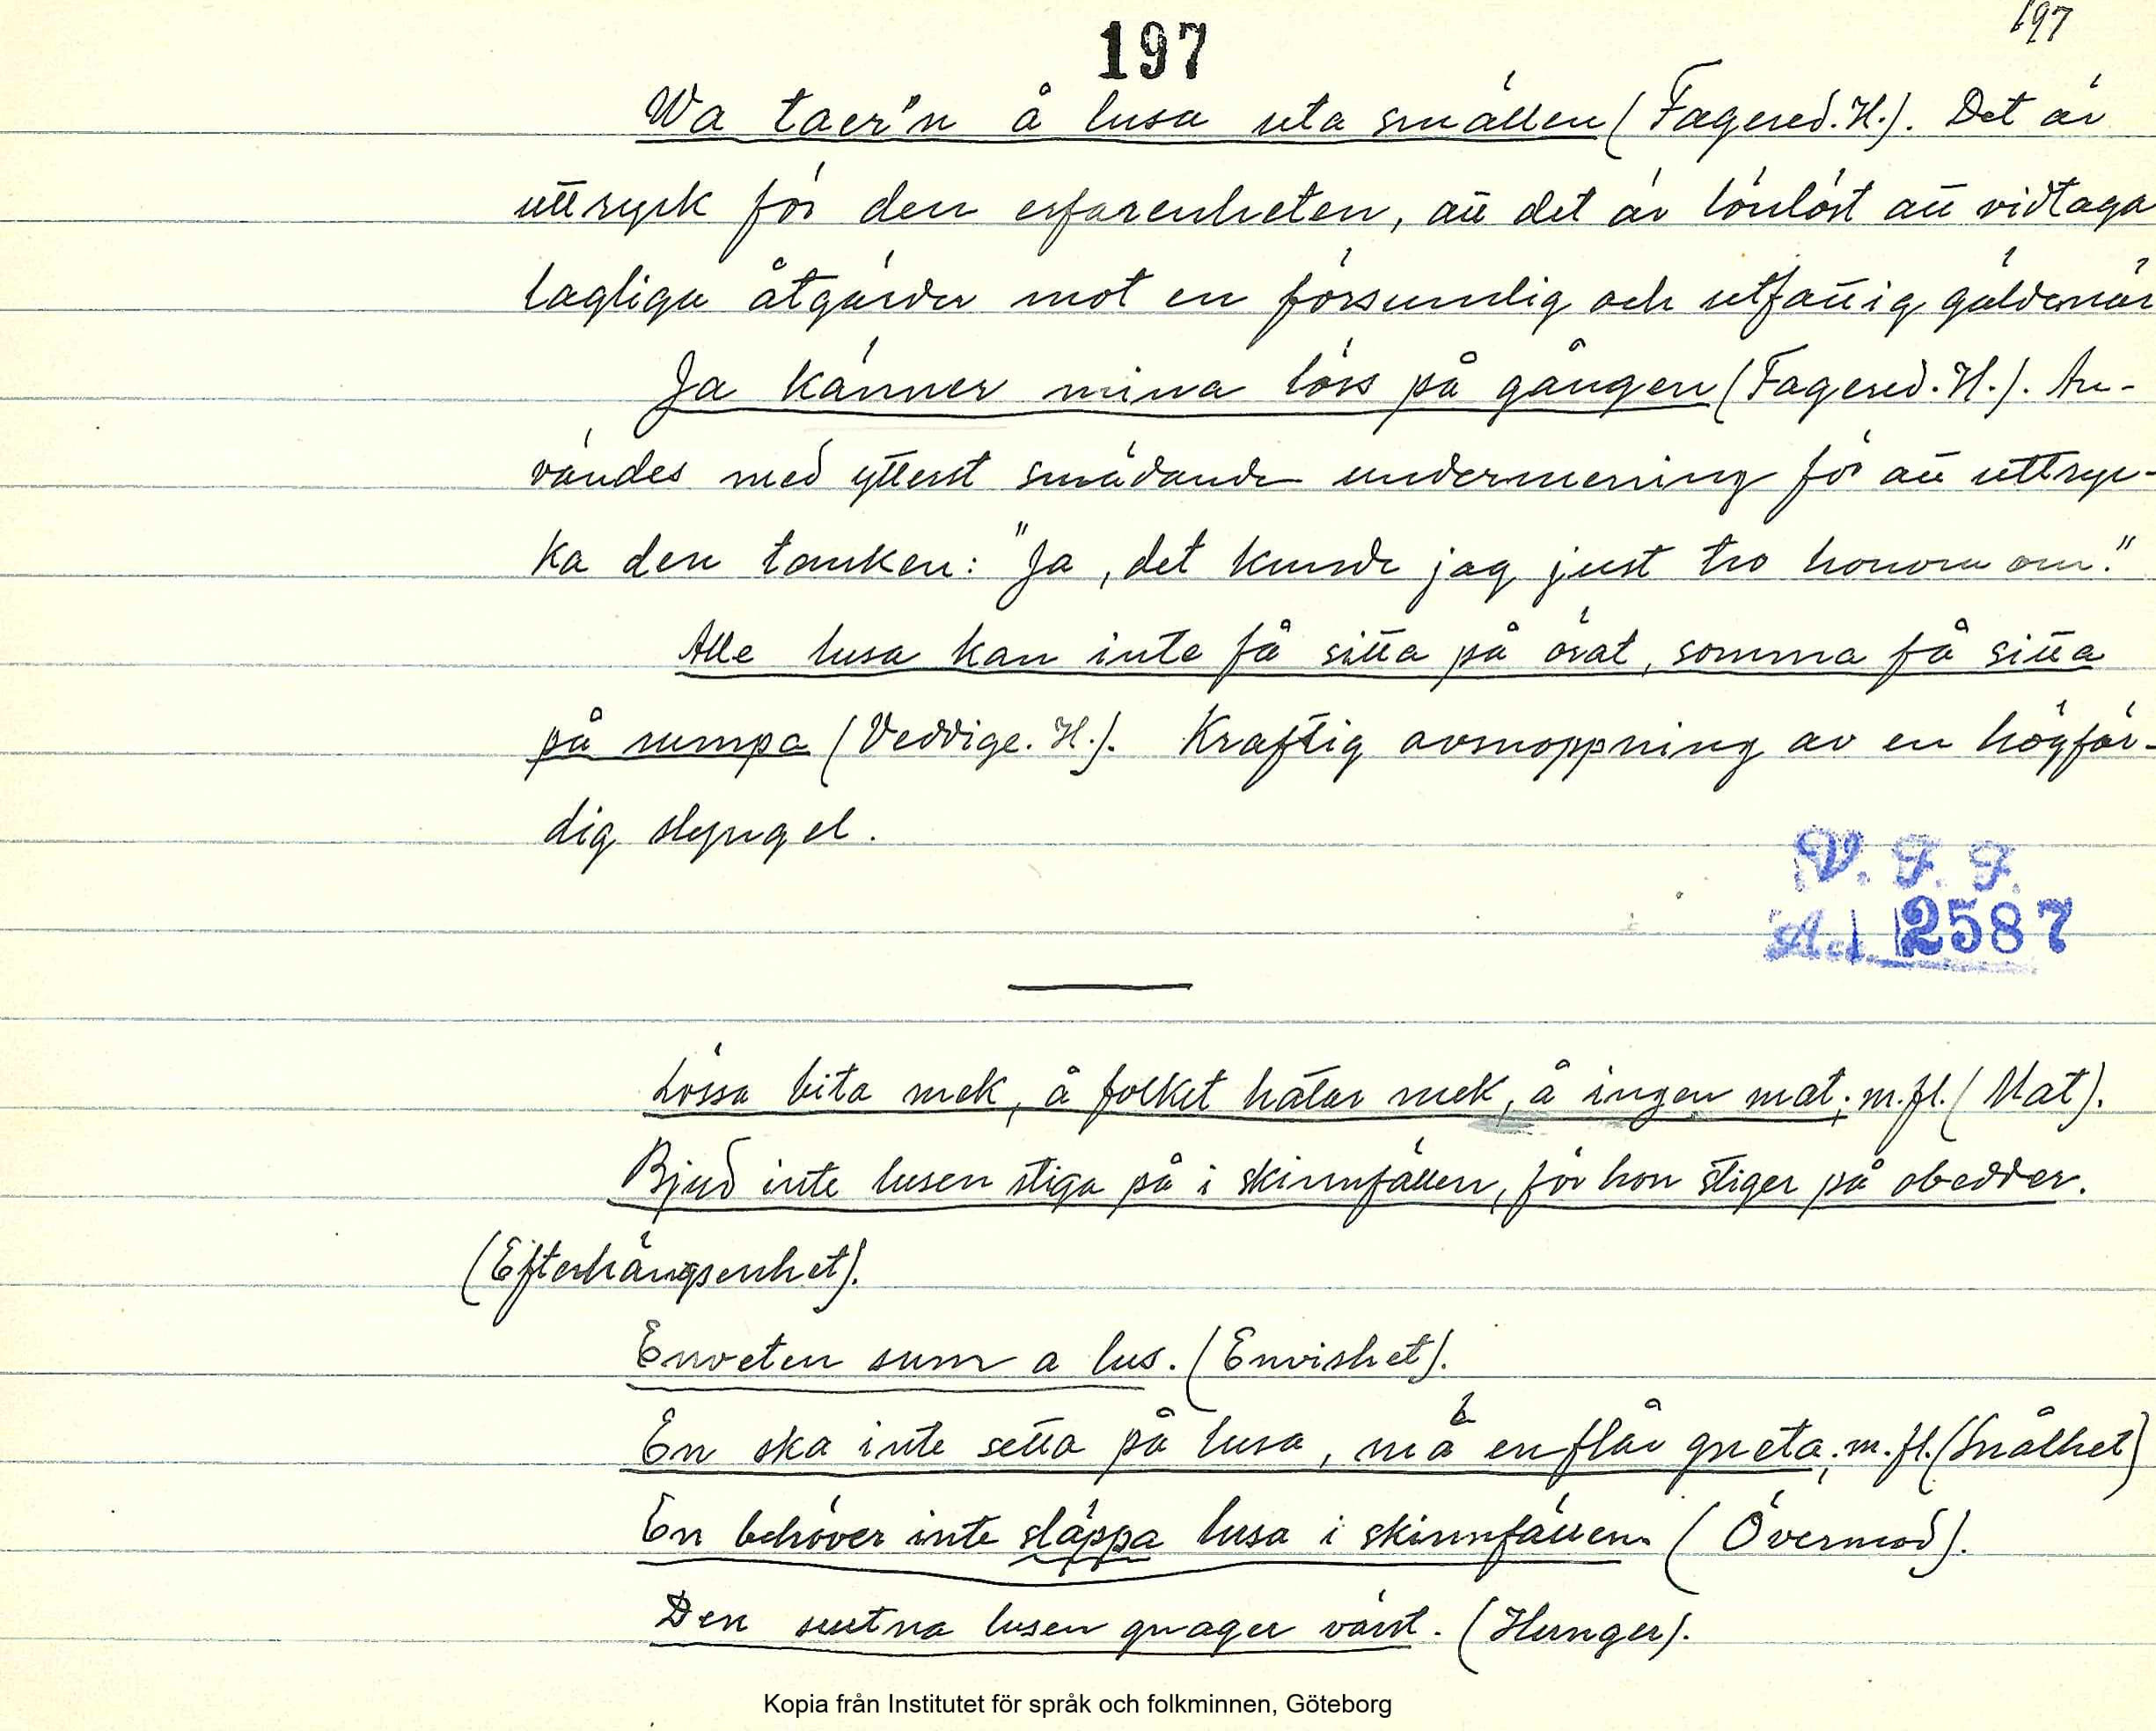 197
197
Wa taer'n å lusa uta smällen (Fagered. H.). Det är
uttryck för den erfarenheten, att det är lönlöst att vidtaga
lagliga åtgärder mot en försumlig och utfattig gäldenär
Ja känner mina löss på gången (Fagered. H.). An-
vändes med ytterst smädande undermening för att uttryc-
ka den tanken: "Ja, det kunde jag just tro honom om."
Alle lusa kan inte få sitta på örat, somma få sitta
på rumpa (Veddige. H.). Kraftig avsnoppning av en högfär-
dig slyngel.
V. F. F.
Acc. 2587
Lössa bita mek, å folket hatar mek, å ingen mat; m.fl. (Mat).
Bjud inte lusen stiga på i skinnfällen, för hon stiger på obedder.
(Efterhängsenhet).
Enveten sum a lus. (Envishet).
En ska inte setta på lusa, må en flår gneta; m.fl. (Snålhet)
En behöver inte släppa lusa i skinnfällen. (Övermod).
Den sutna lusen gnager värst. (Hunger).
Kopia från Institutet för språk och folkminnen, Göteborg